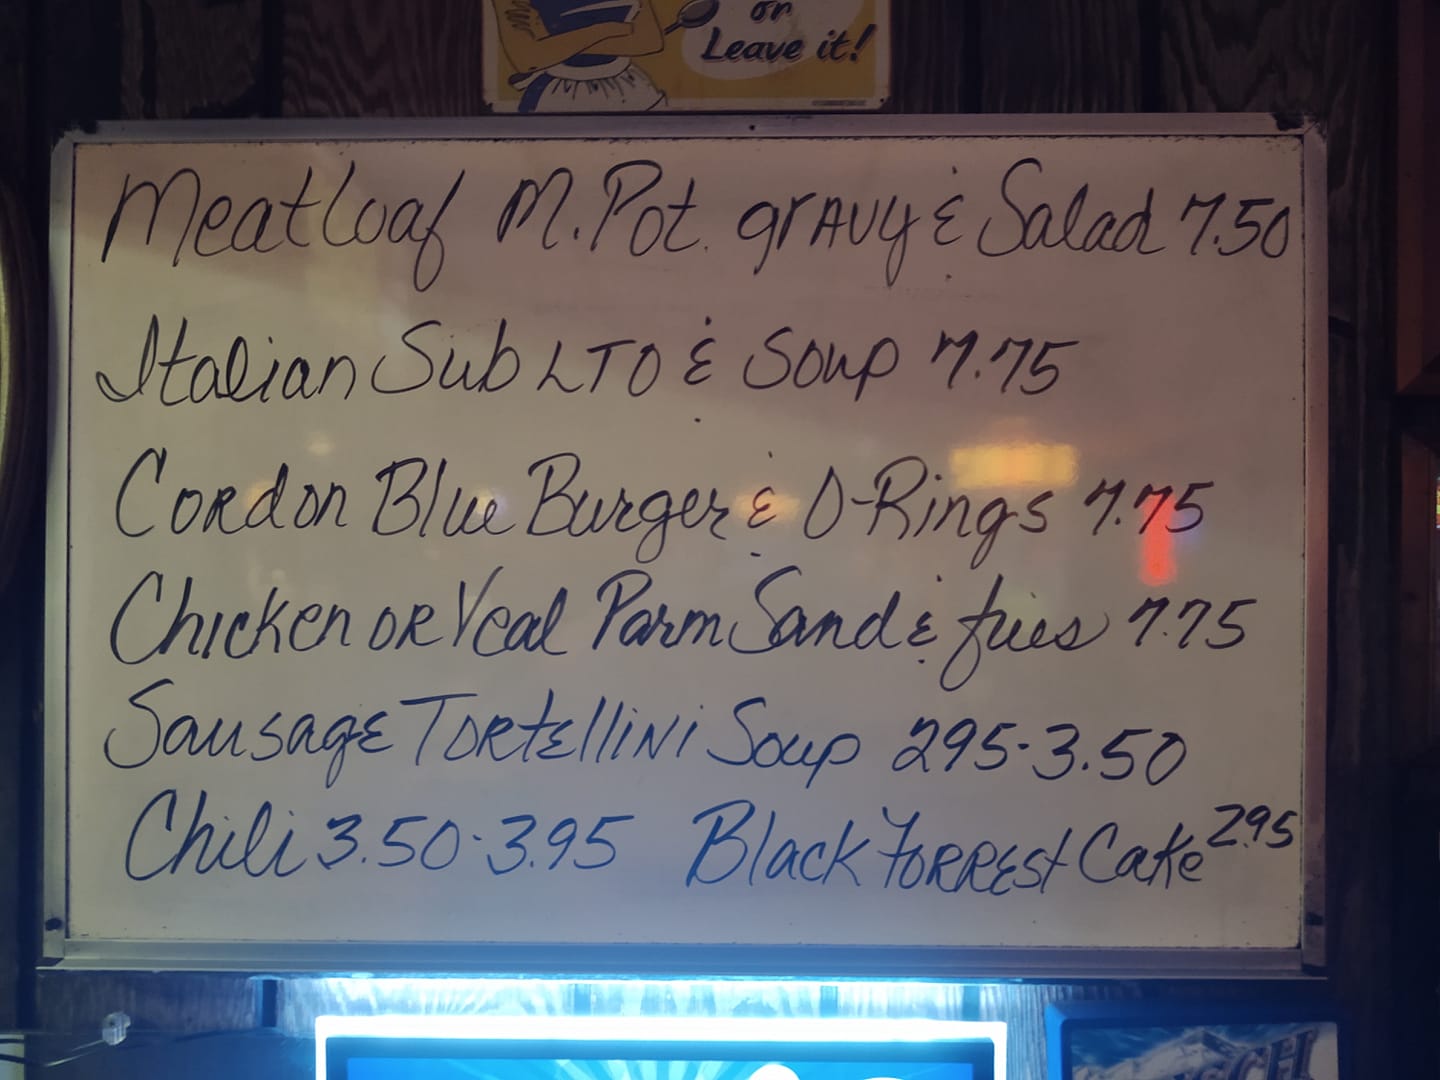 or
Leave it!
Meatloaf M. Pot. gravy & Salad 7.50
Italian Sub LTO & Soup 7.75
Cordon Blue Burger & O-Rings 7.75
Chicken or Veal Parm Sand & fries 7.75
Sausage Tortellini Soup 295-3.50
Chili 3.50-3.95 Black Forrest Cake 2.95